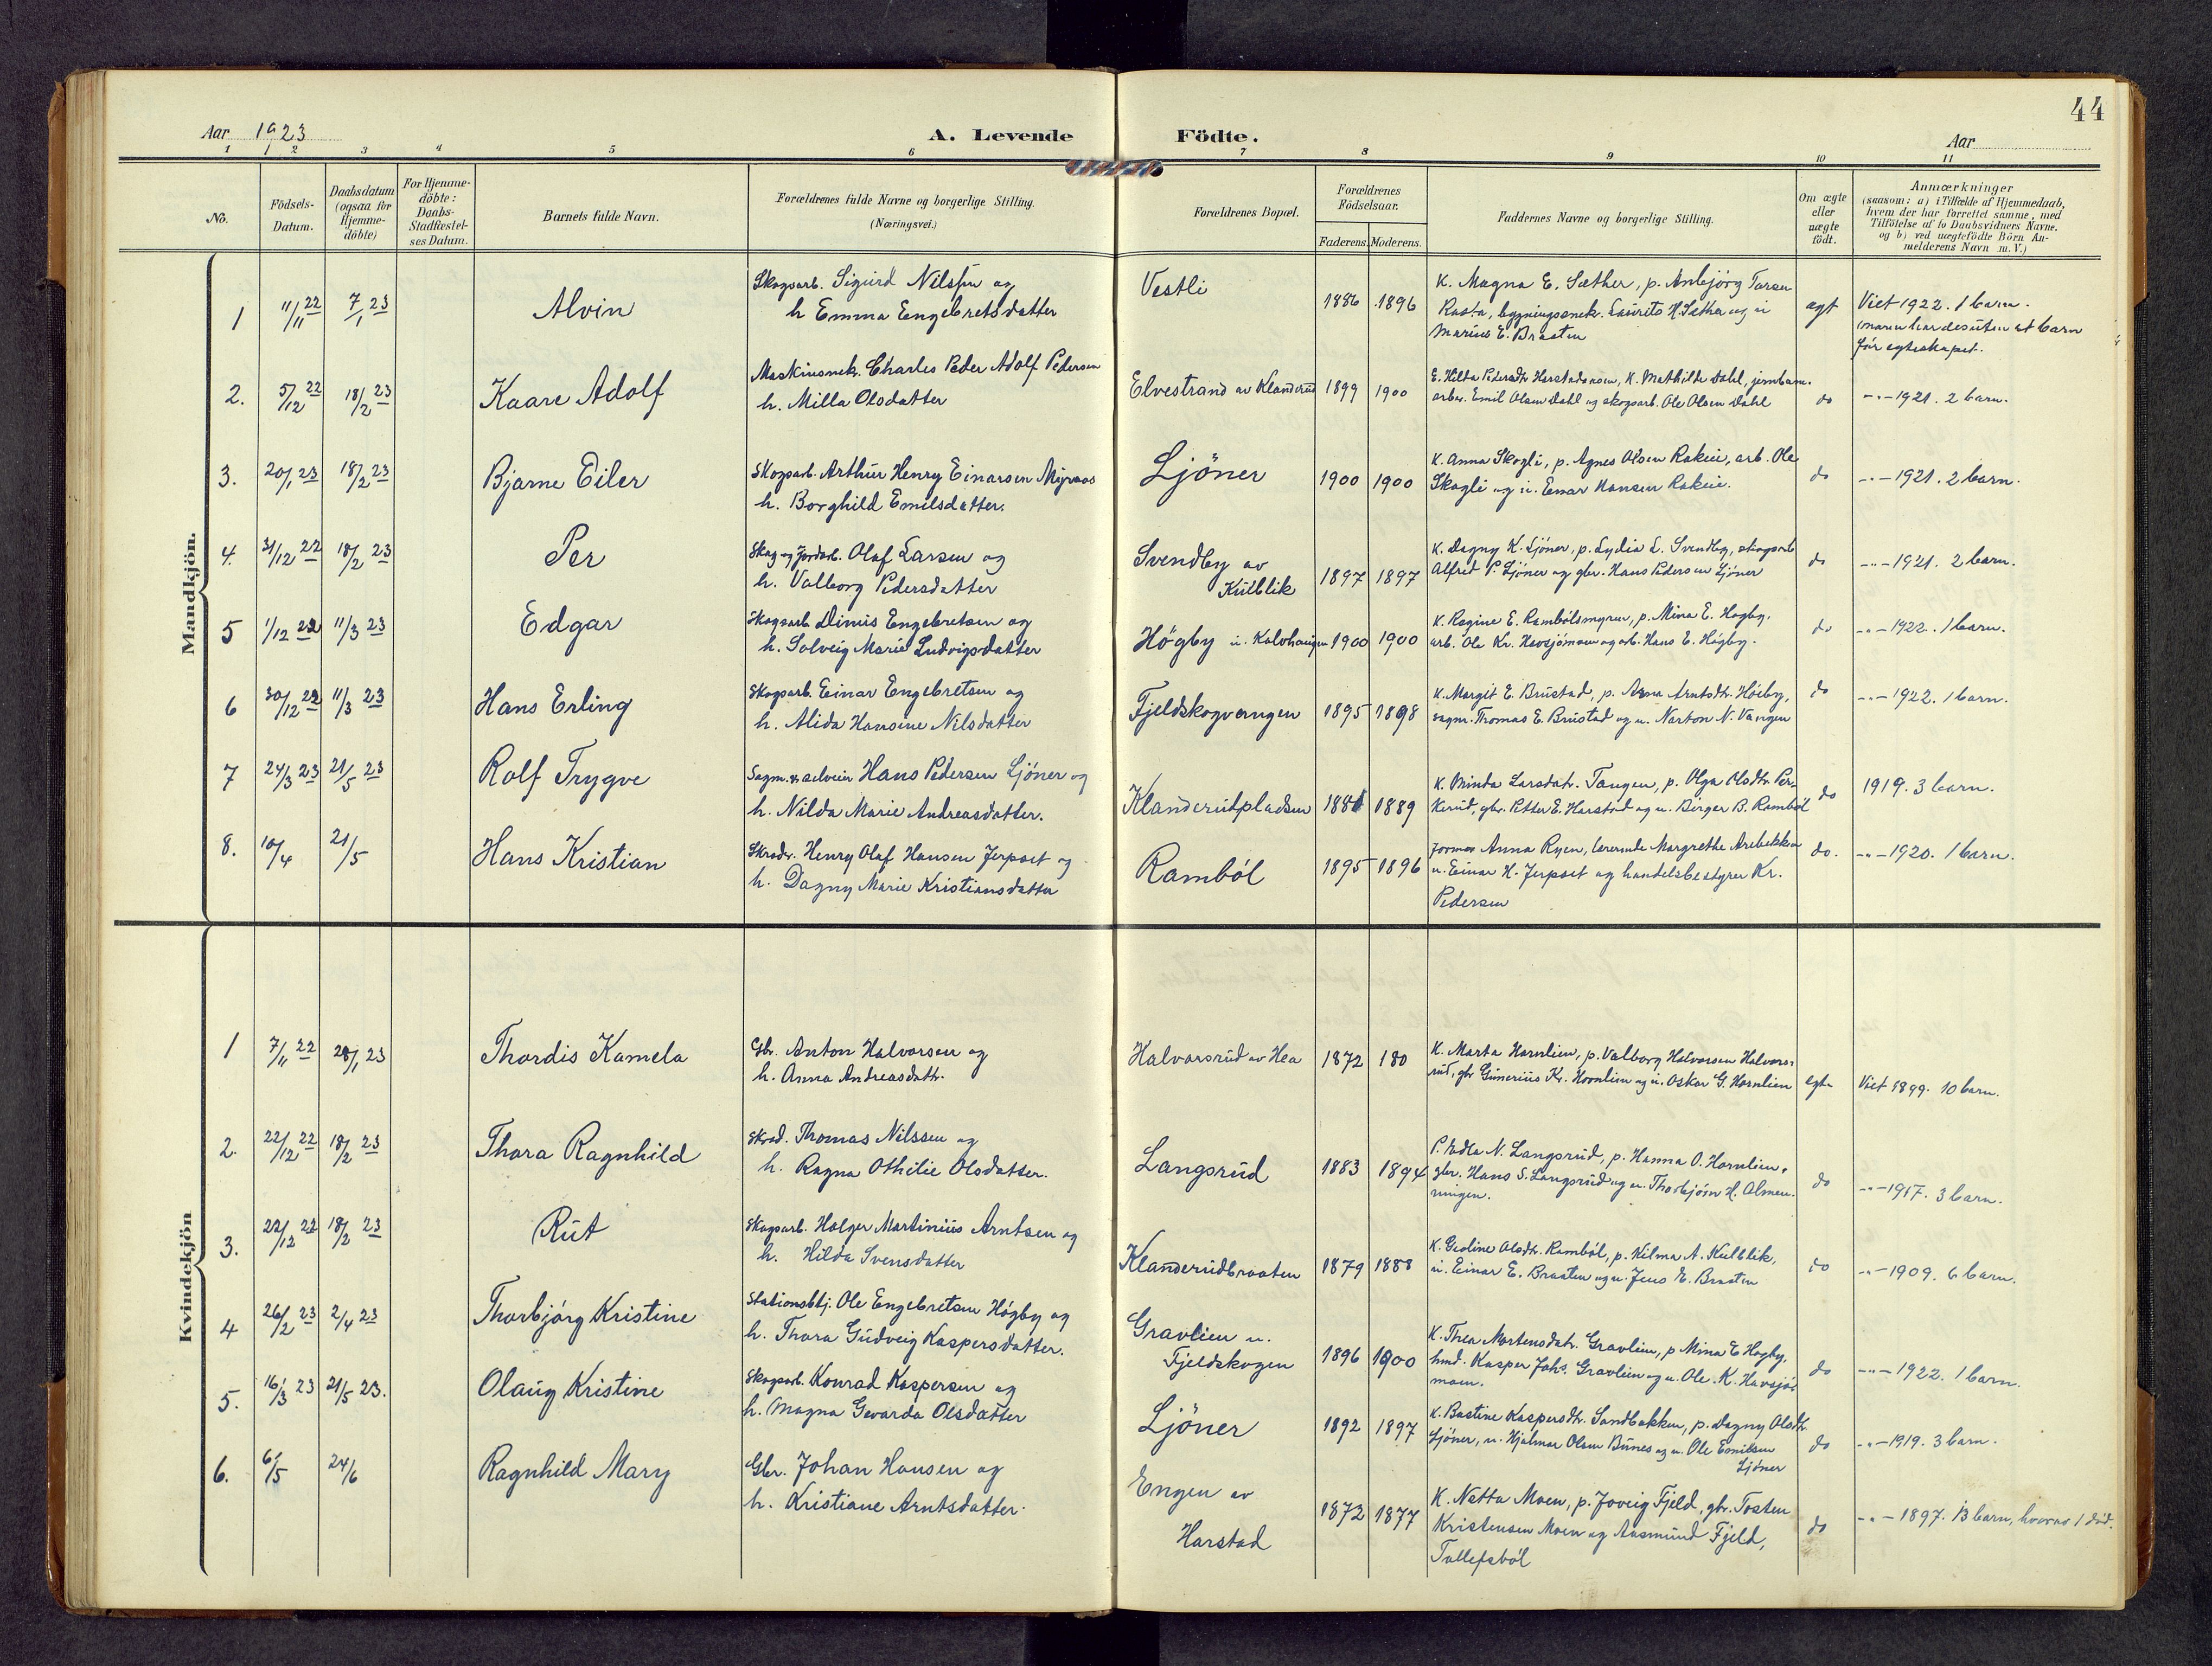 44
Aar 1923
A. Levende Födte.
Aar
1 2 3 4 5 6 7 8 9 10 11
No.
Födsels-Datum.
Daabsdatum (ogsaa for Hjemme-döbte)
For Hjemme-döbte: Daabs-Stadfæstel-ses Datum.
Barnets fulde Navn.
Forældrenes fulde Navne og borgerlige Stilling. (Næringsvei.)
Forældrenes Bopæl.
Forældrenes Födselsaar.
Faderens. Moderens.
Faddernes Navne og borgerlige Stilling.
Om ægte eller uægte födt.
Anmærkninger (saasom: a) i Tilfælde af Hjemmedaab, hvem der har forrettet samme, med Tilföielse af to Daabsvidners Navne, og b) ved uægtefödte Börn An-melderens Navn m.V.)
Mandkjön.
1 11/11 22 7/1 23 Alvin
Skogsarb. Sigurd Nilssen og
h. Emma Engebretsdatter
Vestli 1886 1896
K. Magna E. Sæther, p. Anbjörg Larsen
Rasta, bygningssnek. Laurits H. Sæther og u
Marius E. Braaten
egt
Viet 1922. 1 barn.
(moren har desuten et barn
för egteskapet.
2. 5/12 22 18/2 23 Kaare Adolf
Maskinsnek. Charles Peder Adolf Pedersen
h. Milla Olsdatter
Elvestrand av Klanderud 1899 1900
E. Hilda Pedersdtr Harstadaasen, K. Mathilde Dahl, jernban.
arber. Emil Olsen Dahl og skogsarb. Ole Olsen Dahl
do
-"- 1921. 2 barn.
3. 20/1 23 18/2 23 Bjarne Eiler
Skogsarb. Arthur Henry Einarsen
h. Borghild Emilsdatter.
Ljöner 1900 1900
K. Anna Skogli, p. Agnes Olsen Rakeie, arb. Ole
Skogli og u. Einar Hansen Rakeie.
do
-"- 1921. 2 barn.
4. 31/12 22 18/2 23 Per
Skog og Jordarb. Olaf Larsen og
h. Valborg Pedersdatter
Svendby av
Kulblik 1897 1897
K. Dagny K. Ljöner, p. Lydia L. Svendby, skogsarb
Alfred P. Ljöner og gbr. Hans Pedersen Ljöner
do
-"- 1921. 2 barn.
5 1/12 22 11/3 23 Edgar
Skogsarb. Dinus Engebretsen og
h. Solveig Marie Ludvigsdatter
Högby u. Kalvhaugen 1900 1900
K. Ragine E. Rambölsmyren, p. Mina E. Högby,
arb. Ole Kr. Havsjömoen og arb. Hans E. Högby.
do
-"- 1922. 1 barn.
6 30/12 22 11/3 23 Hans Erling
Skogsarb. Einar Engebretsen og
h. Alida Hansine Nilsdatter
Fjeldskogvangen 1895 1898
K. Margit E. Brustad, p. Anna Arntsdtr. Höiby,
sagm. Thomas E. Brustad og u. Narton N. Vangen
do
-"- 1922. 1 barn.
7 24/3 23 21/5 23 Rolf Trygve
Sagm. & selveier Hans Pedersen Ljöner og
h. Nilda Marie Andreasdatter.
Klanderudpladsen 1889
K. Minda Larsdatr. Tangen, p. Olga Olsdtr. Per-
kerud, gbr. Petter E. Harstad og u. Birger B. Ramböl
do
1919. 3 barn.
8. 10/4 21/5 Hans Kristian
Skrædr. Henry Olaf Hansen Jerpset og
h. Dagny Marie Kristiansdatter
Ramböl 1895 1896
Jormor Anna Ryen, lærerinde Margrethe Arebekken
u. Einar H. Jerpset og handelsbestyrer Kr.
Pedersen
do.
-"- 1920. 1 barn.
Kvindekjön
1 7/11 22 28/1 23 Thordis Kamela
Gbr. Anton Halvorsen og
h. Anna Andreasdatr.
Halvorsrud av Hea 1872 180
K. Marta Hornlien, p. Valborg Halvorsen Halvors-
rud, gbr Gunerius Kr. Hornlien og u. Oskar G. Hornlien
egte
Viet 1899. 10 barn.
2. 22/12 22 18/2 23 Thora Ragnhild
Skræd. Thomas Nilssen og
h. Ragna Othilie Olsdatter.
Langsrud 1883 1894
P. Nadla N. Langsrud, p. Hanna O. Hornlien,
gbr. Hans S. Langsrud og u. Thorbjörn H. Almen-
ningen.
do
-"- 1917. 3 barn.
3. 22/12 22 18/2 23 Rut
Skogsarb. Holger Martinius Arntsen og
h. Hilda Svensdatter
Klanderudbraaten 1879 1888
K. Geoline Olsdtr. Ramböl, p. Hilma A. Kulblik,
u. Einar E. Braaten og u. Jens E. Braaten
do
-"- 1909. 6 barn.
4 26/2 23 2/4 23 Thorbjörg Kristine
Stationsbtj. Ole Engebretsen Högby og
h. Thora Gudveig Kaspersdatter.
Gravlien u.
Fjeldskogen 1896 1900
K. Thea Mortensdatr. Gravlien, p Mina E Högby,
hmd. Kasper Johs. Gravlien og u. Ole. K. Havsjö-
moen.
do
-"- 1922. 1 barn.
5. 16/3 23 21/5 23. Olaug Kristine
Skogsarb. Konrad Kaspersen og
h. Magna Gevarda Olsdatter
Ljöner 1892 1897
K. Bastine Kaspersdtr. Sandbakken, p. Dagny Olsdtr.
Ljöner, u. Hjalmar Olsen Bunes og u. Ole Emilsen
Ljöner
do
-"- 1919. 3 barn.
6. 6/5 24/6 Ragnhild Mary
Gbr. Johan Hansen og
h. Kristiane Arntsdatter.
Engen av
Harstad 1872 1877
K. Netta Moen, p. Joveig Fjeld, gbr. Tosten
Kristensen Moen og Aasmund Fjeld,
Tollefsböl
do
-"- 1897. 13 barn, hvorav 1 död.